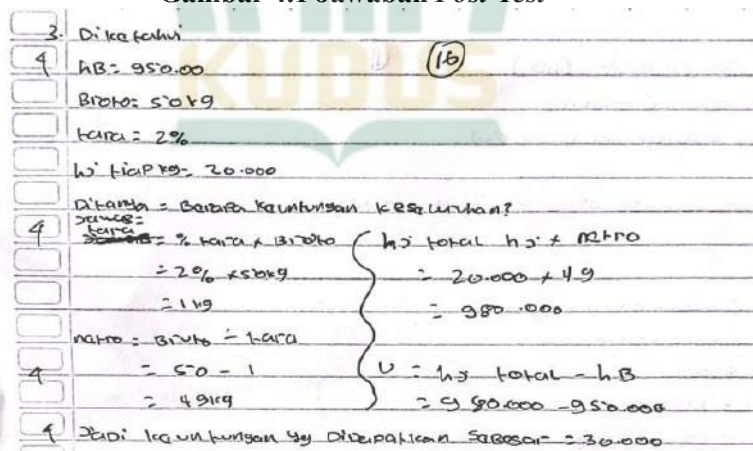 Gambar 4.1 Jawaban Post Test
3. Diketahui
4
hB = 950.00
16
Broto = 50 kg
tara = 2%
hj tiap kg = 20.000
Ditanya = Berapa keuntungan keseluruhan?
4
Jawab =
tara = % tara x Bruto
= 2% x 50 kg
= 1 kg
netto = Bruto - tara
4
= 50 - 1
= 49 kg
hj total hj x netto
= 20.000 x 49
= 980.000
U = hj total - hB
= 980.000 - 950.000
4
Jadi keuntungan yg Didapatkan Sebesar = 30.000
KUDUS